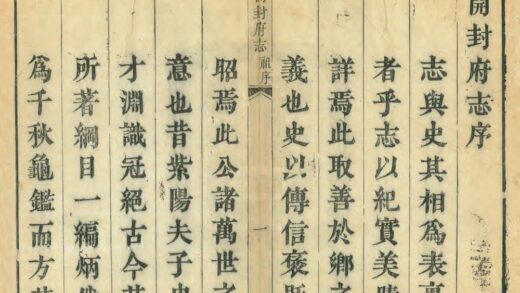 開封府志序
志與史其相爲表裏
者乎志以紀實美
詳焉此取善於鄉之
義也史以傳信褒貶
開封府志
序
一
昭焉此公諸萬世之
意也昔紫陽夫子史
才淵識冠絕古今其
所著綱目一編炳
爲千秋龜鑑而方